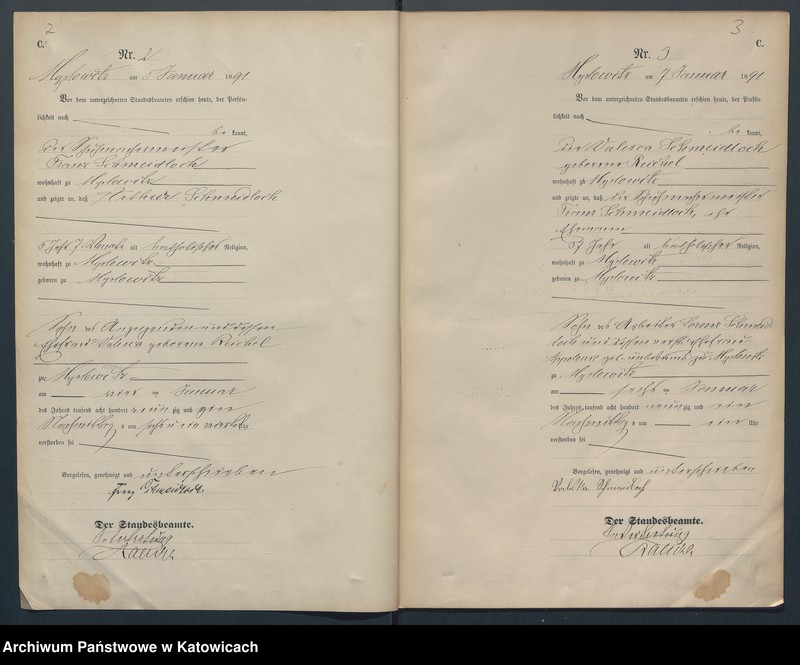 2
C.
Nr. 2
Myslowitz am 5 Januar 1891
Vor dem unterzeichneten Standesbeamten erschien heute, der Persön-
lichkeit nach
be kannt,
der Schuhmachermeister
Franz Schmeidloch
wohnhaft zu Myslowitz
und zeigte an, daß Schmeidloch
5 Jahr 7 Monate alt katholischer Religion,
wohnhaft zu Myslowitz
geboren zu Myslowitz
Sohn des Anzeigenden und dessen
Ehefrau Valesca geborene Reichel
zu Myslowitz
am vier ten Januar
des Jahres tausend acht hundert neun zig und ein
Nachmittag s um sechs ein viertel Uhr
verstorben sei
Vorgelesen, genehmigt und unterschrieben
Franz Schmeidloch
Der Standesbeamte.
In Vertretung
3
C.
Nr. 3
Myslowitz am 7 Januar 1891
Vor dem unterzeichneten Standesbeamten erschien heute, der Persön-
lichkeit nach
be kannt,
die Valesca Schmeidloch
geborene Reichel
wohnhaft zu Myslowitz
und zeigte an, daß der Schuhmachermeister
Franz Schmeidloch, ihr
Ehemann
37 Jahr alt katholischer Religion,
wohnhaft zu Myslowitz
geboren zu Myslowitz
Sohn des Arbeiter Schmeid
loch und dessen Ehefrau
geb. unbekannt zu Myslowitz
zu Myslowitz
am sechs ten Januar
des Jahres tausend acht hundert neun zig und ein
Nachmittag s um ein Uhr
verstorben sei
Vorgelesen, genehmigt und unterschrieben
Valeska Schmeidloch
Der Standesbeamte.
In Vertretung
Archiwum Państwowe w Katowicach